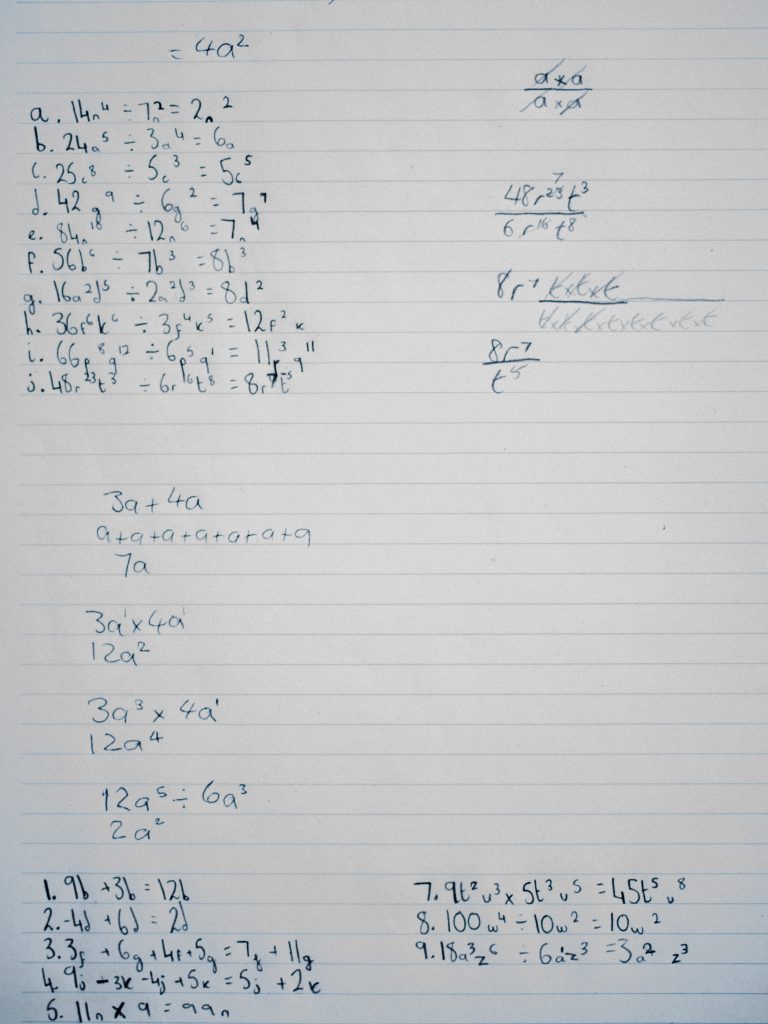 = 4a²
a×a
a×a
a. 14n⁴ ÷ 7n² = 2n²
b. 24a⁵ ÷ 3a⁴ = 6a
c. 25c⁸ ÷ 5c³ = 5c⁵
d. 42g⁹ ÷ 6g² = 7g⁷
e. 84n¹⁰ ÷ 12n⁶ = 7n⁴
f. 56b⁶ ÷ 7b³ = 8b³
g. 16a²d⁵ ÷ 2a²d³ = 8d²
h. 36f⁶k⁶ ÷ 3f⁴k⁵ = 12f²k
i. 66p⁸q¹² ÷ 6p⁵q¹ = 11p³q¹¹
j. 48r²³t³ ÷ 6r¹⁶t⁸ = 8r⁷t⁻⁵
7
48r²³t³
6r¹⁶t⁸
8r⁷ t×t×t
t×t×t×t×t×t×t×t
8r⁷
t⁵
3a + 4a
a+a+a+a+a+a+a
7a
3a¹ × 4a¹
12a²
3a³ × 4a¹
12a⁴
12a⁵ ÷ 6a³
2a²
1. 9b + 3b = 12b
2. -4d + 6d = 2d
3. 3f + 6g + 4f + 5g = 7f + 11g
4. 9j - 3k - 4j + 5k = 5j + 2k
5. 11n × 9 = 99n
7. 9t²v³ × 5t³v⁵ = 45t⁵v⁸
8. 100w⁴ ÷ 10w² = 10w²
9. 18a³z⁶ ÷ 6a¹z³ = 3a²z³